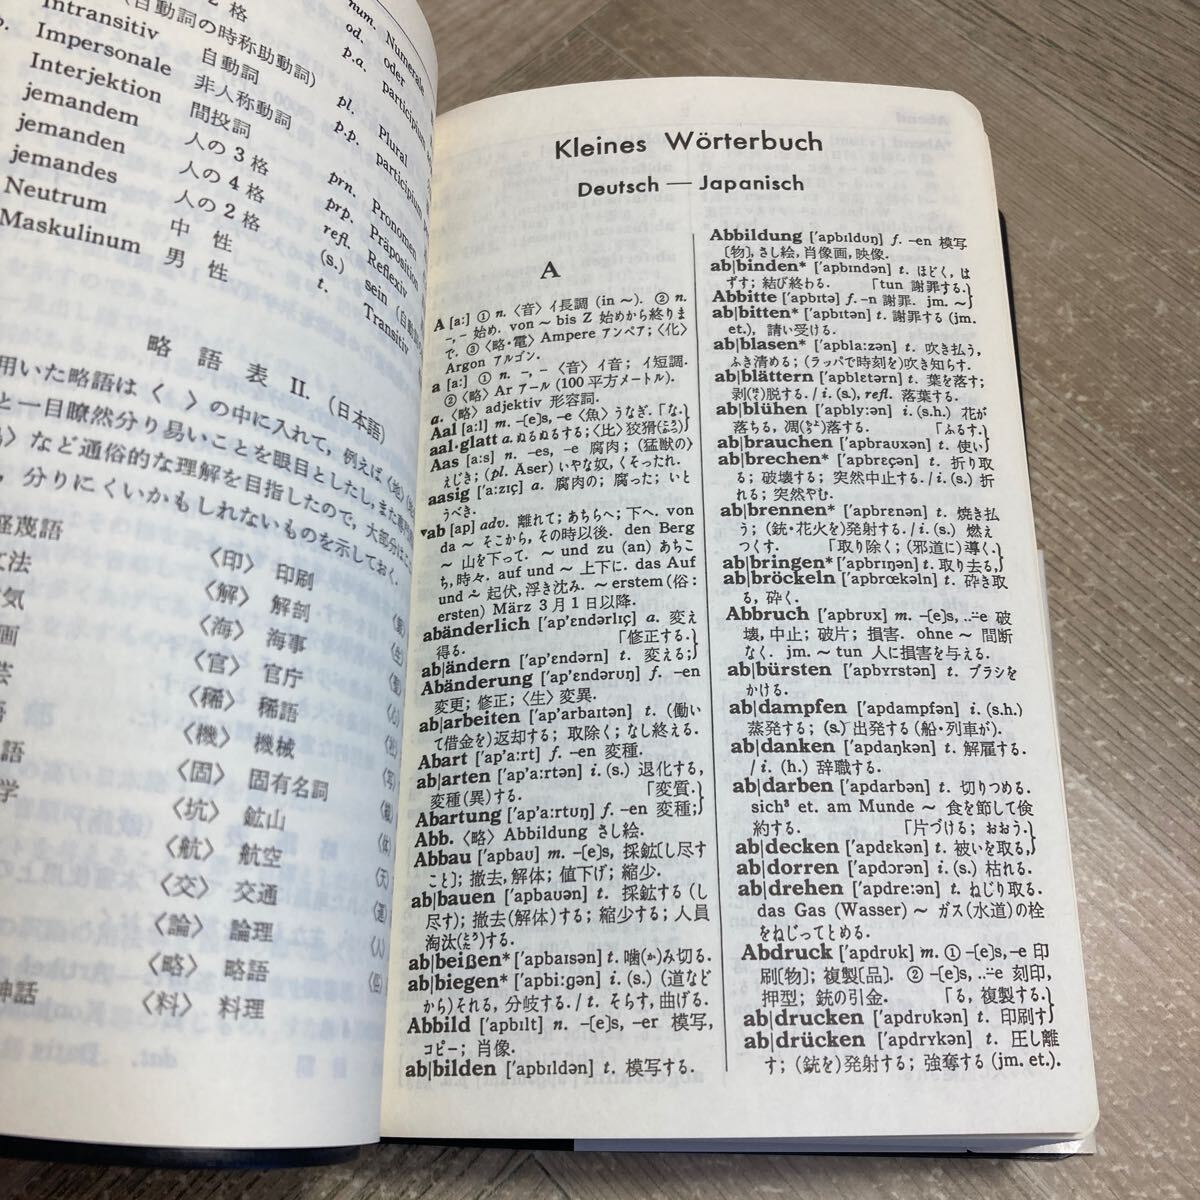 2 格
(自動詞の時称助動詞)
Intransitiv 自動詞
Impersonale 非人称動詞
Interjektion 間投詞
jemandem 人の3格
jemanden 人の4格
jemandes 人の2格
Neutrum 中 性
Maskulinum 男 性
num. Numerale
od. oder
p.a. participium
pl. Plural
p.p. participium
prn. Pronomen
prp. Präposition
refl. Reflexiv
(s.) sein
t. Transitiv
略 語 表 II. (日本語)
用いた略語は〈 〉の中に入れて,例えば,〈地〉
と一目瞭然分り易いことを眼目としたし,また
など通俗的な理解を目指したので,大部分は
,分りにくいかもしれないものを示しておく.
軽蔑語 〈印〉 印刷
文法 〈解〉 解剖
〈海〉 海事
〈官〉 官庁
〈稀〉 稀語
〈機〉 機械
〈固〉 固有名詞
〈坑〉 鉱山
〈航〉 航空
〈交〉 交通
〈論〉 論理
〈略〉 略語
神話 〈料〉 料理
Kleines Wörterbuch
Deutsch — Japanisch
A
A [aː] ① n. 〈音〉イ長調 (in ~). ② n.
-, - 始め. von ~ bis Z 始めから終りま
で. ③〈略・電〉Ampere アンペア;〈化〉
Argon アルゴン.
a [aː] ① n. -, - 〈音〉イ音; イ短調.
②〈略〉Ar アール (100 平方メートル).
a. 〈略〉adjektiv 形容詞.
Aal [aːl] m. -[e]s, -e〈魚〉うなぎ.「な.
aal·glatt a. ぬるぬるする;〈比〉狡猾(こうかつ)
Aas [aːs] n. -es, -e 腐肉; (猛獣の)
えじき; (pl. Äser) いやな奴, くそったれ.
aasig ['aːzɪç] a. 腐肉の; 腐った; いと
うべき.
▾ab [ap] adv. 離れて; あちらへ; 下へ. von
da ~ そこから, その時以後. den Berg
~ 山を下って. ~ und zu (an) あちこ
ち, 時々. auf und ~ 上下に. das Auf
und ~ 起伏, 浮き沈み. ~ erstem (俗:
ersten) März 3月1日以降.
abänderlich ['ap'ɛndərlɪç] a. 変え
得る. 「修正する.
ab|ändern ['ap'ɛndərn] t. 変える;
Abänderung ['ap'ɛndərʊŋ] f. -en
変更; 修正;〈生〉変異.
ab|arbeiten ['ap'arbaɪtən] t. (働い
て借金を)返却する; 取除く; なし終える.
Abart ['ap'aːrt] f. -en 変種.
ab|arten ['ap'aːrtən] i. (s.) 退化する,
変種(異)する. 「変質.
Abartung ['ap'aːrtʊŋ] f. -en 変種;
Abb. 〈略〉Abbildung さし絵.
Abbau ['apbaʊ] m. -[e]s, 採鉱[し尽す
こと]; 撤去, 解体; 値下げ; 縮少.
ab|bauen ['apbaʊən] t. 採鉱する (し
尽す); 撤去(解体)する; 縮少する; 人員
淘汰(とうた)する.
ab|beißen* ['apbaɪsən] t. 噛(か)み切る.
ab|biegen* ['apbiːgən] i. (s.) (道など
から)それる, 分岐する. / t. そらす, 曲げる.
Abbild ['apbɪlt] n. -[e]s, -er 模写,
コピー; 肖像.
ab|bilden ['apbɪldən] t. 模写する.
Abbildung ['apbɪldʊŋ] f. -en 模写
[物], さし絵, 肖像画, 映像.
ab|binden* ['apbɪndən] t. ほどく, は
ずす; 結び終わる. 「tun 謝罪する.
Abbitte ['apbɪtə] f. -n 謝罪. jm. ~
ab|bitten* ['apbɪtən] t. 謝罪する (jm.
et.), 請い受ける.
ab|blasen* ['apblaːzən] t. 吹き払う,
ふき清める; (ラッパで時刻を)吹き知らす.
ab|blättern ['apblɛtərn] t. 葉を落す;
剥(は)脱する. / i. (s.), refl. 落葉する.
ab|blühen ['apblyːən] i. (s.h.) 花が
落ちる, 凋(しぼ)落する. 「ふるす.
ab|brauchen ['apbraʊxən] t. 使い
ab|brechen* ['apbrɛçən] t. 折り取
る; 破壊する; 突然中止する. / i. (s.) 折
れる; 突然やむ.
ab|brennen* ['apbrɛnən] t. 焼き払
う; (銃・花火を)発射する. / i. (s.) 燃え
つくす. 「取り除く; (邪道に)導く.
ab|bringen* ['apbrɪŋən] t. 取り去る,
ab|bröckeln ['apbrœkəln] t. 砕き取
る, 砕く.
Abbruch ['apbrʊx] m. -[e]s, ..⸚e 破
壊, 中止; 破片; 損害. ohne ~ 間断
なく. jm. ~ tun 人に損害を与える.
ab|bürsten ['apbʏrstən] t. ブラシを
かける.
ab|dampfen ['apdampfən] i. (s.h.)
蒸発する; (s.) 出発する (船・列車が).
ab|danken ['apdaŋkən] t. 解雇する.
/ i. (h.) 辞職する.
ab|darben ['apdarbən] t. 切りつめる.
sich³ et. am Munde ~ 食を節して倹
約する. 「片づける; おおう.
ab|decken ['apdɛkən] t. 被いを取る,
ab|dorren ['apdɔrən] i. (s.) 枯れる.
ab|drehen ['apdreːən] t. ねじり取る.
das Gas (Wasser) ~ ガス(水道)の栓
をねじってとめる.
Abdruck ['apdrʊk] m. ① -[e]s, -e 印
刷[物]; 複製[品]. ② -[e]s, ..⸚e 刻印,
押型; 銃の引金. 「る, 複製する.
ab|drucken ['apdrʊkən] t. 印刷す
ab|drücken ['apdrʏkən] t. 圧し離
す; (銃を)発射する; 強奪する (jm. et.).